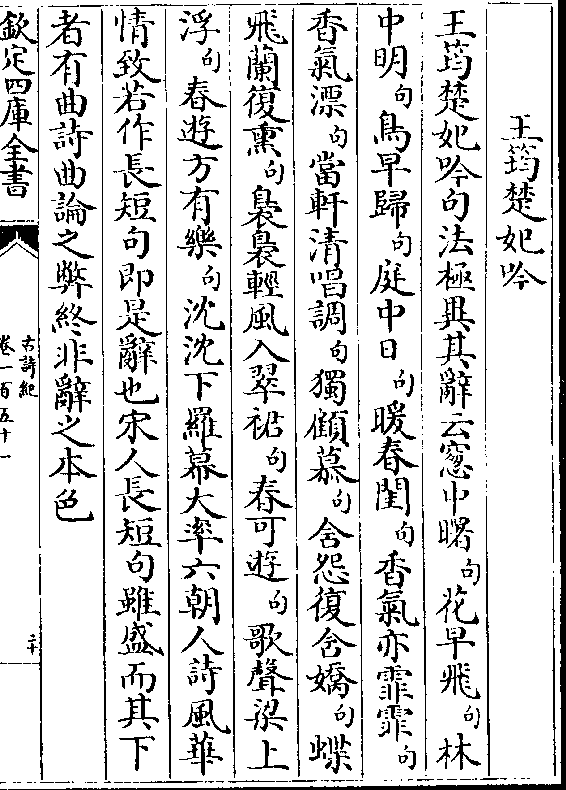 王筠楚妃吟
王筠楚妃吟句法極異其辭云窻中曙句花早飛句林
中明句鳥早歸句庭中日句暖春閨句香氣亦霏霏句
香氣漂句當軒清唱調句獨顧慕句含怨復含嬌句蝶
飛蘭復熏句裊裊輕風入翠裙句春可遊句歌聲梁上
浮句春遊方有樂句沈沈下羅幕大率六朝人詩風華
情致若作長短句即是辭也宋人長短句雖盛而其下
者有曲詩曲論之弊終非辭之本色
欽定四庫全書
古詩紀
卷一百五十一
二十